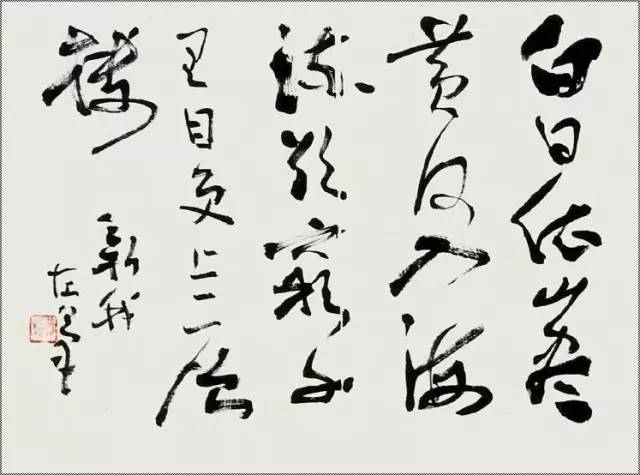 白日依山尽
黄河入海
流欲窮千
里目更上一层
樓
新我
左笔